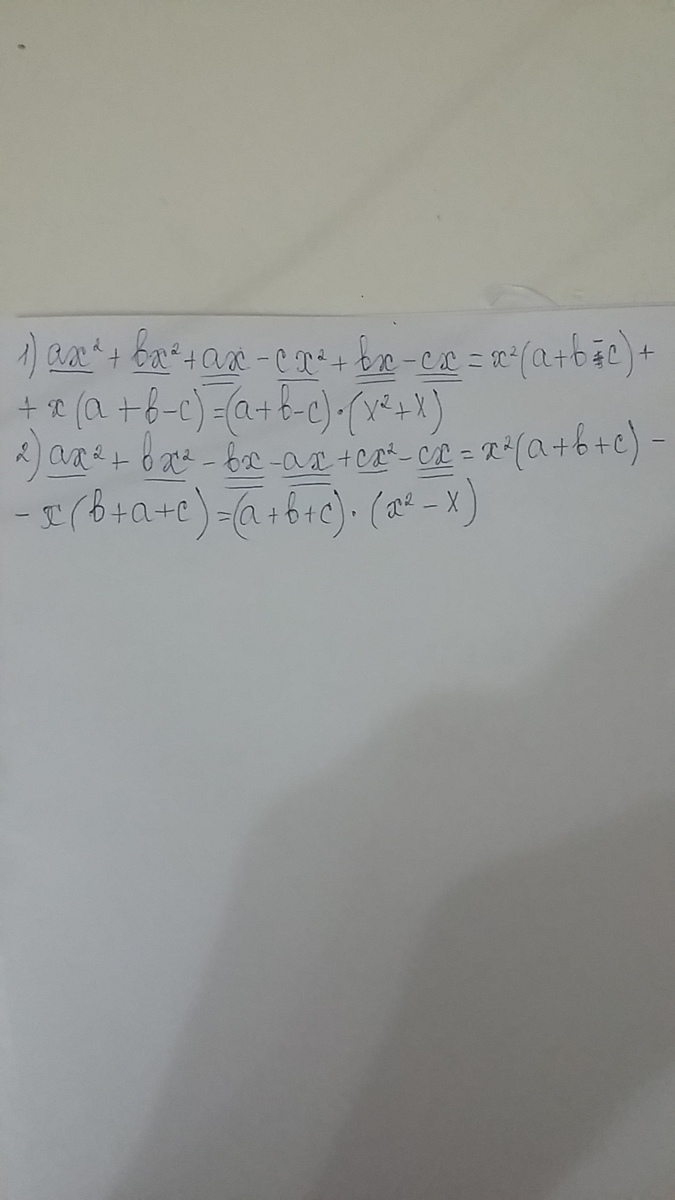 1) ax² + bx² + ax - cx² + bx - cx = x²(a + b - c) +
+ x (a + b - c) = (a + b - c) · (x² + x)
2) ax² + bx² - bx - ax + cx² - cx = x²(a + b + c) -
- x (b + a + c) = (a + b + c) · (x² - x)